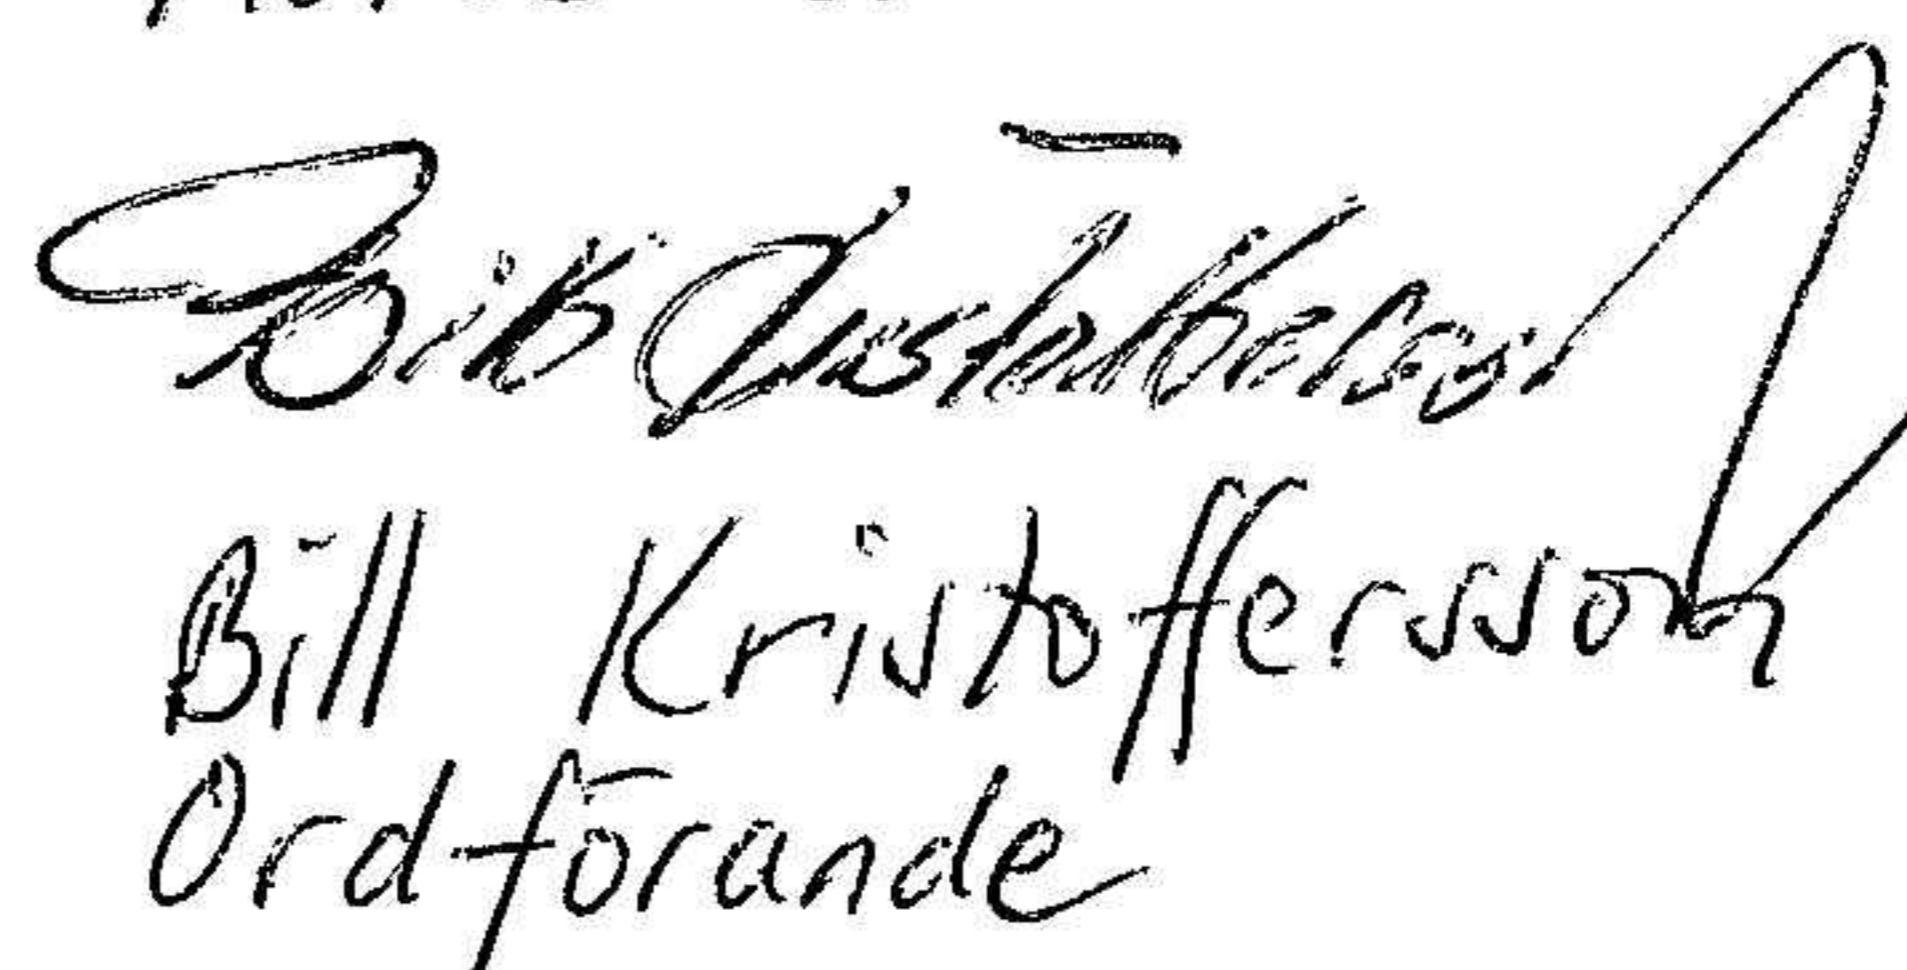 Bill Kristoffersson
Bill Kristoffersson
Ordförande